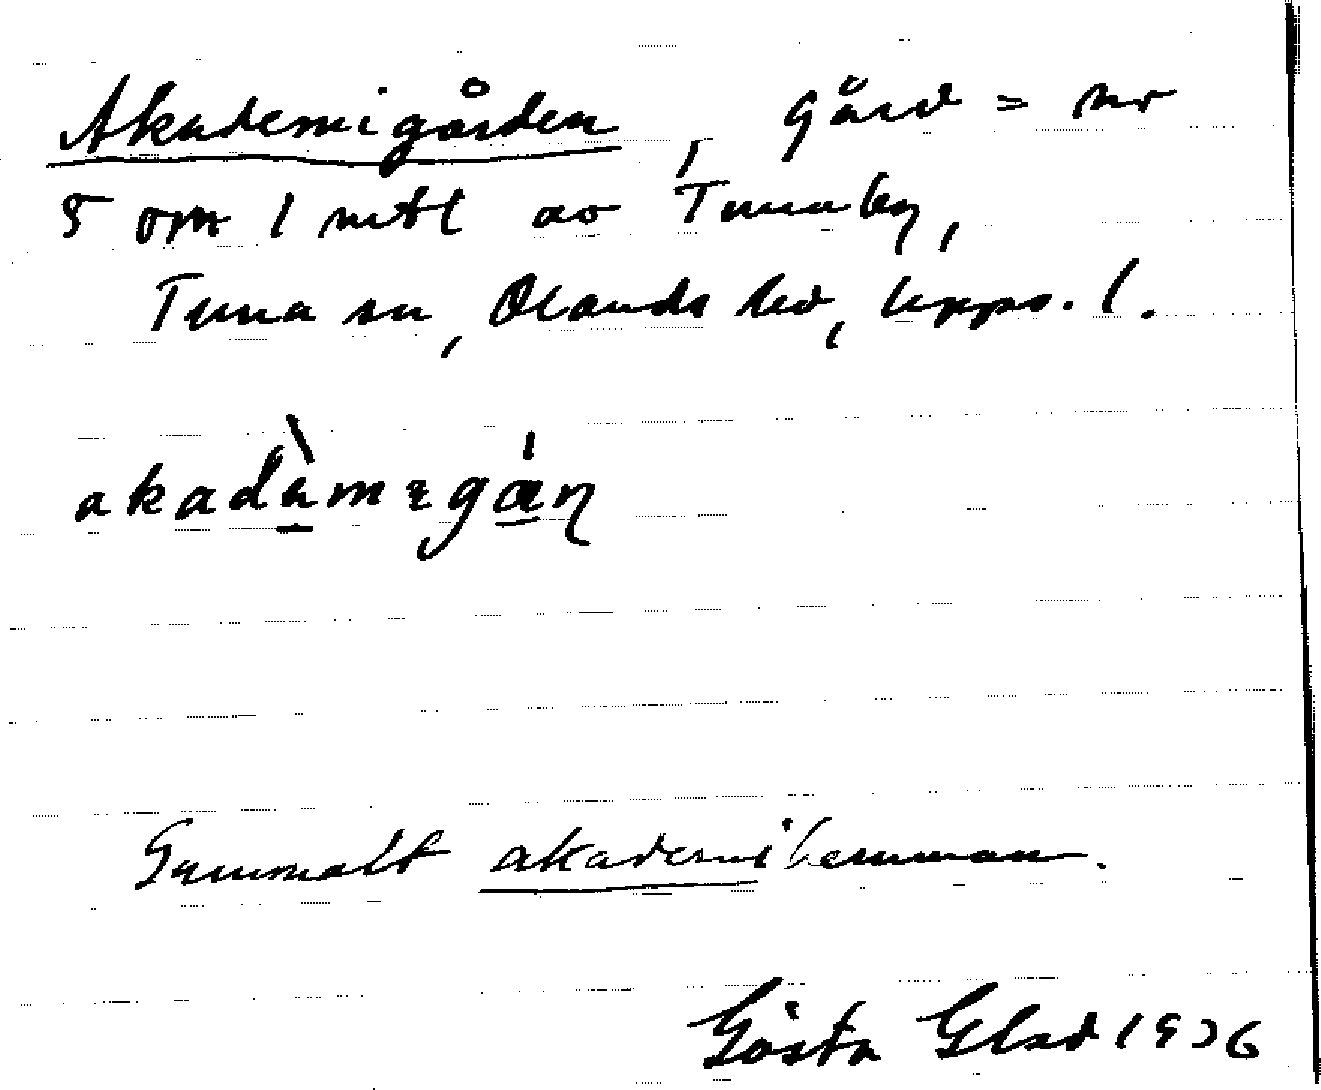 Akademigården, gård = nr
5 om 1 mtl av Tunaby,
Tuna sn, Olands hd, Upps. l.
Gammalt akademihemman.
Gösta Glad 1936